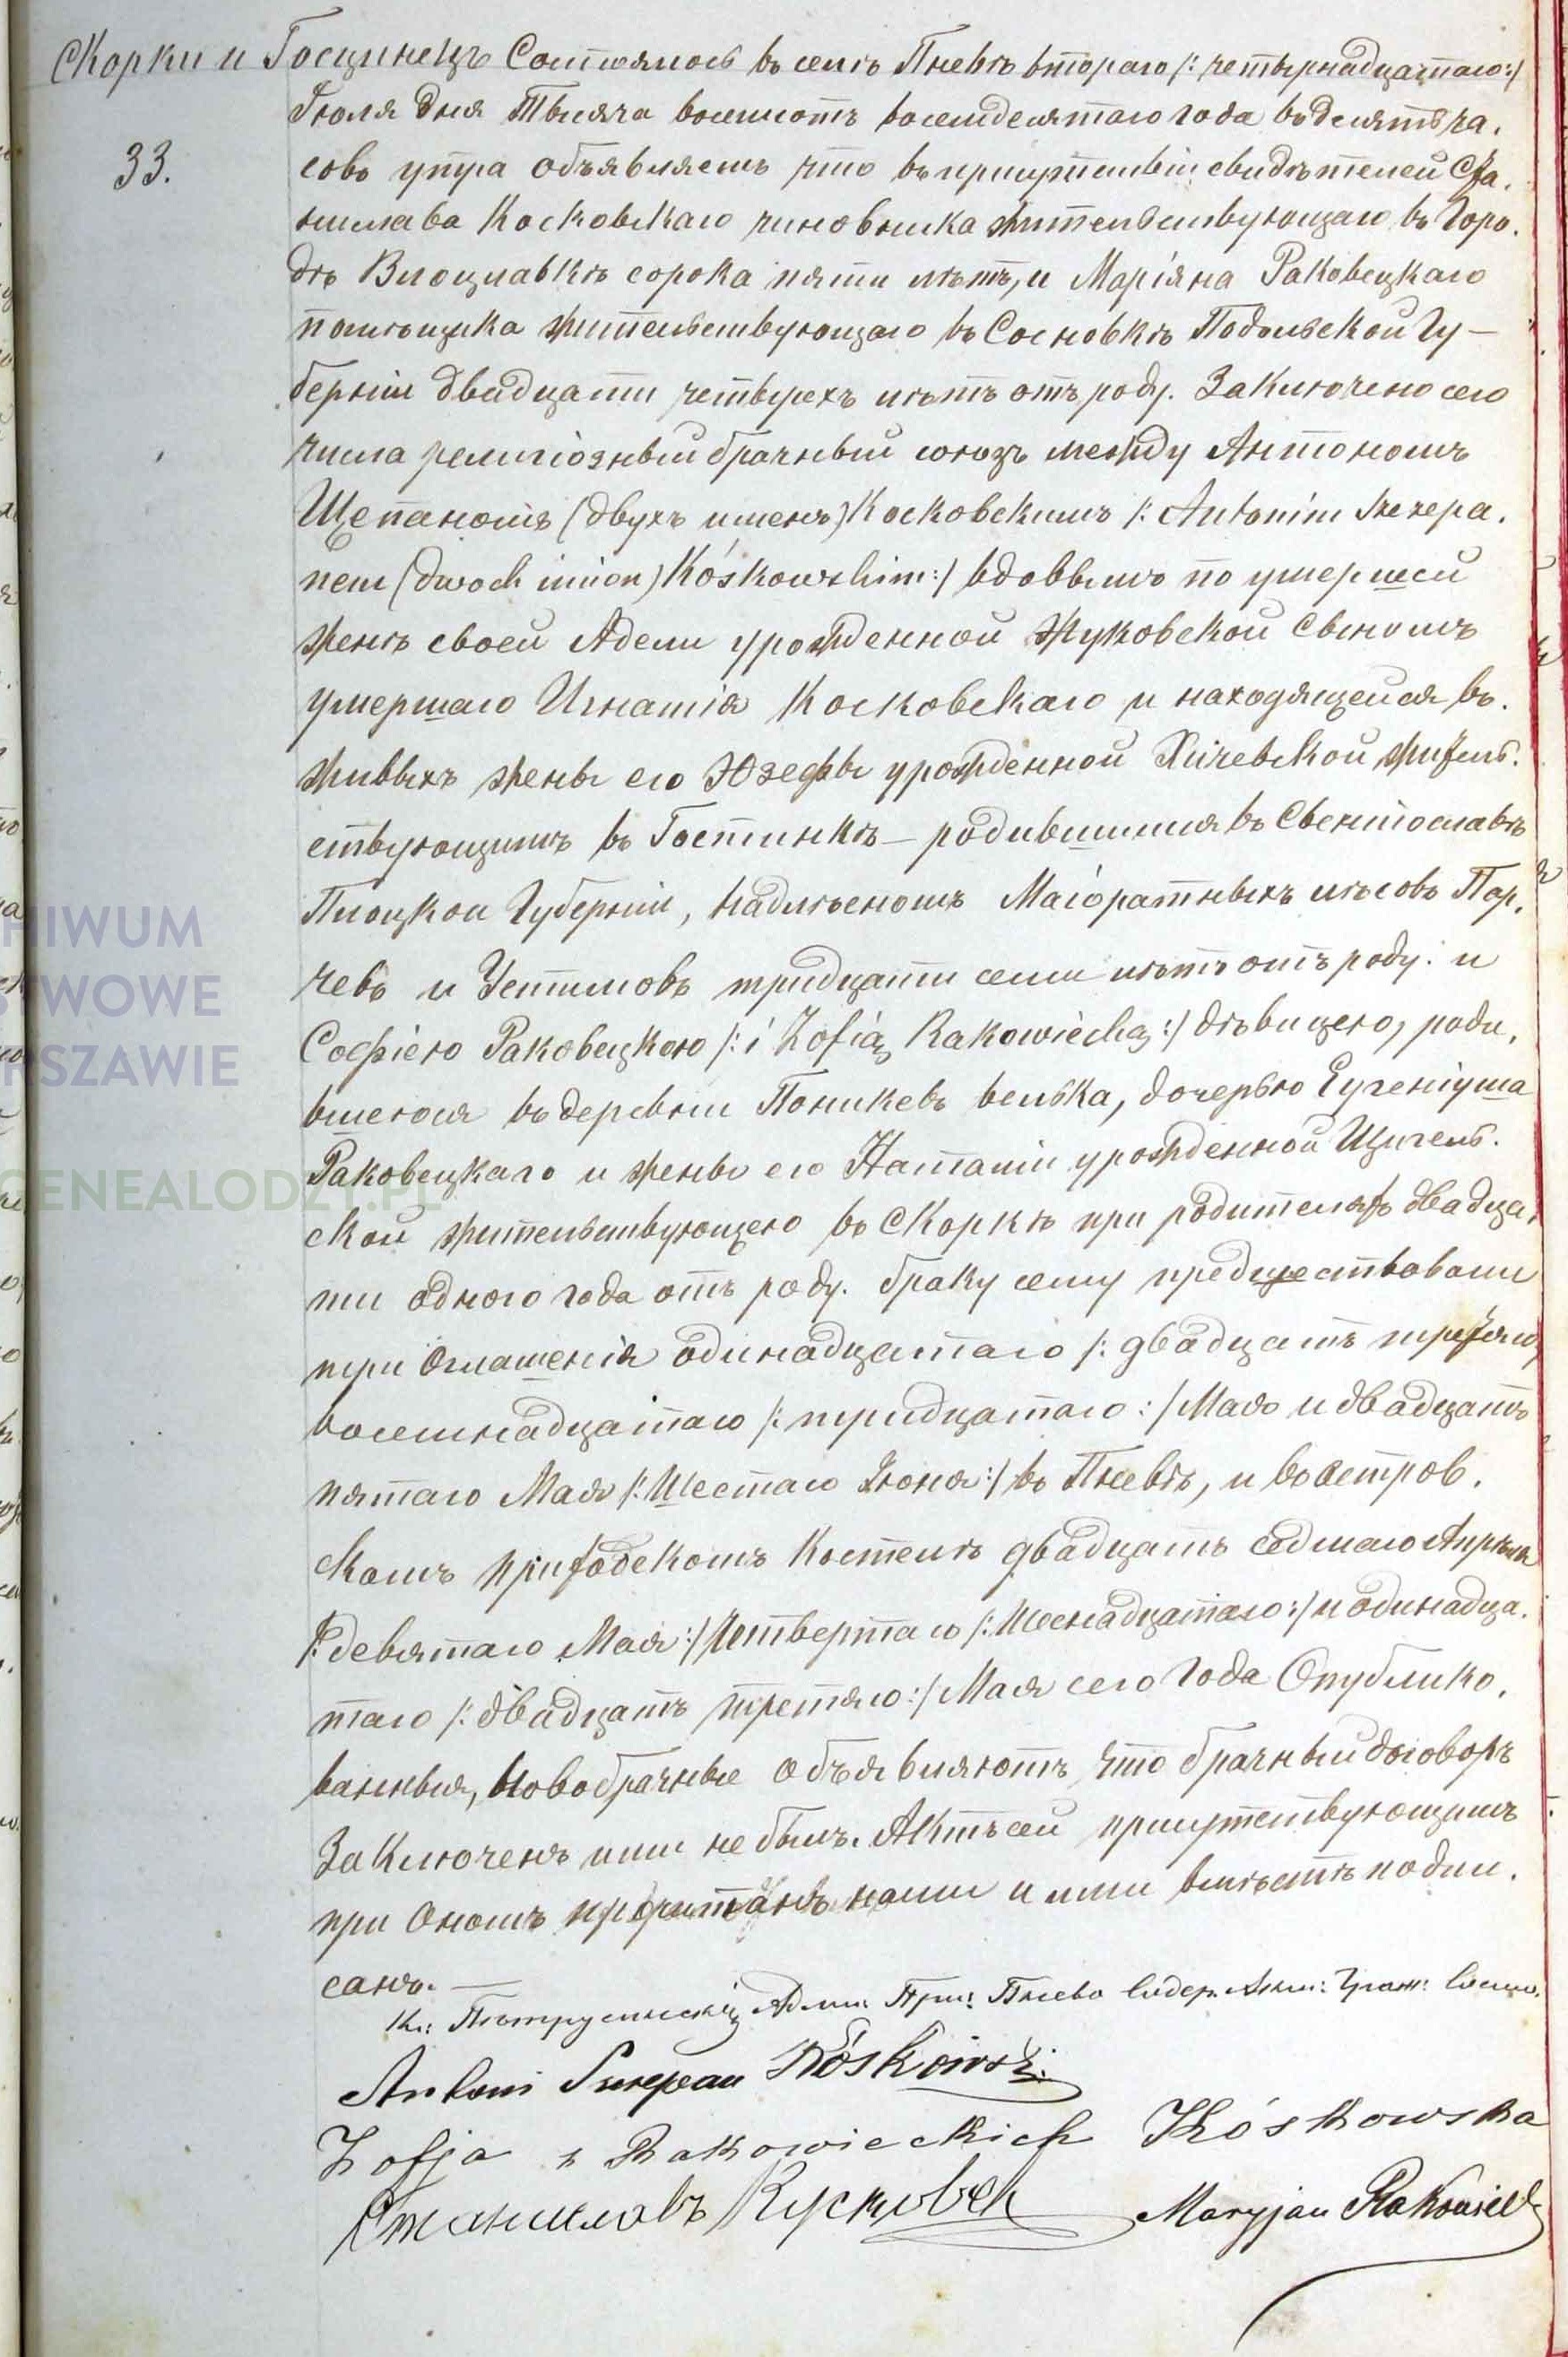 Скорки и Госцинецъ Состоялось въ селѣ Пневѣ втораго /: четырнадцатаго :/
33.
Іюля дня Тысяча восемсотъ восемдесятаго года въ десять ча.
совъ утра объявляемъ что въ присутствіи свидѣтелей Ста.
нислава Косковскаго чиновника жительствующаго въ Горо.
дѣ Влоцлавкѣ сорока пяти лѣтъ, и Маріяна Раковецкаго
помѣщика жительствующаго въ Сосновкѣ Подольской Гу–
берніи двадцати четырехъ лѣтъ отъ роду. Заключено сего
числа религіозный брачный союзъ между Антономъ
Щепаномъ (двухъ именъ) Косковскимъ /: Antonim Szczepa.
nem (dwoch imion) Kóskowskim :/ вдовымъ по умершей
женѣ своей Адели урожденной Жуковской сыномъ
умершаго Игнатія Косковскаго и находящейся въ.
живыхъ жены его Юзефы урожденной Хичевской житель.
ствующимъ въ Гостинкѣ – родившимся въ Свентославѣ
Плоцкой Губерніи, Надлѣсномъ Маіоратныхъ лѣсовъ Пар.
чевъ и Устимовъ тридцати семи лѣтъ отъ роду: и
Софіею Раковецкою /: i Zofią Rakowiecką :/ дѣвицею, роди.
вшеюся въ деревни Поникевъ велька, дочерью Еугеніуша
Раковецкаго и жены его Наталіи урожденной Щигель.
ской жительствующею въ Скоркѣ при родителяхъ двадца.
ти одного года отъ роду. браку сему предшествовали
три Оглашенія одинадцатаго /: двадцать третяго
восемнадцатаго /: тридцатаго :/ Мая и двадцать
пятаго Мая /: Шестаго Іюня :/ въ Пневѣ, и въ остров.
скомъ приходскомъ Костелѣ двадцать седмаго Апрѣля
/: девятаго Мая :/ Четвертаго /: Шеснадцатаго :/ и одинадца.
таго /: двадцать третяго :/ Мая сего Года Опублико.
ванныя, Новобрачные объявляютъ что брачный договоръ
Заключенъ ими не былъ. Актъ сей присутствующимъ
при ономъ прочитанъ нами и ими вмѣстѣ подпи.
санъ. —
Кс: Адми: При: Пнево Содер. Акт: Граж: Состо.
Antoni Szczepan Kóskowski
Zofja z Rakowieckich Kóskowska
Станиславъ Maryjan Rakowiecki
HIWUM
TWOWE
RSZAWIE
GENEALODZY.PL